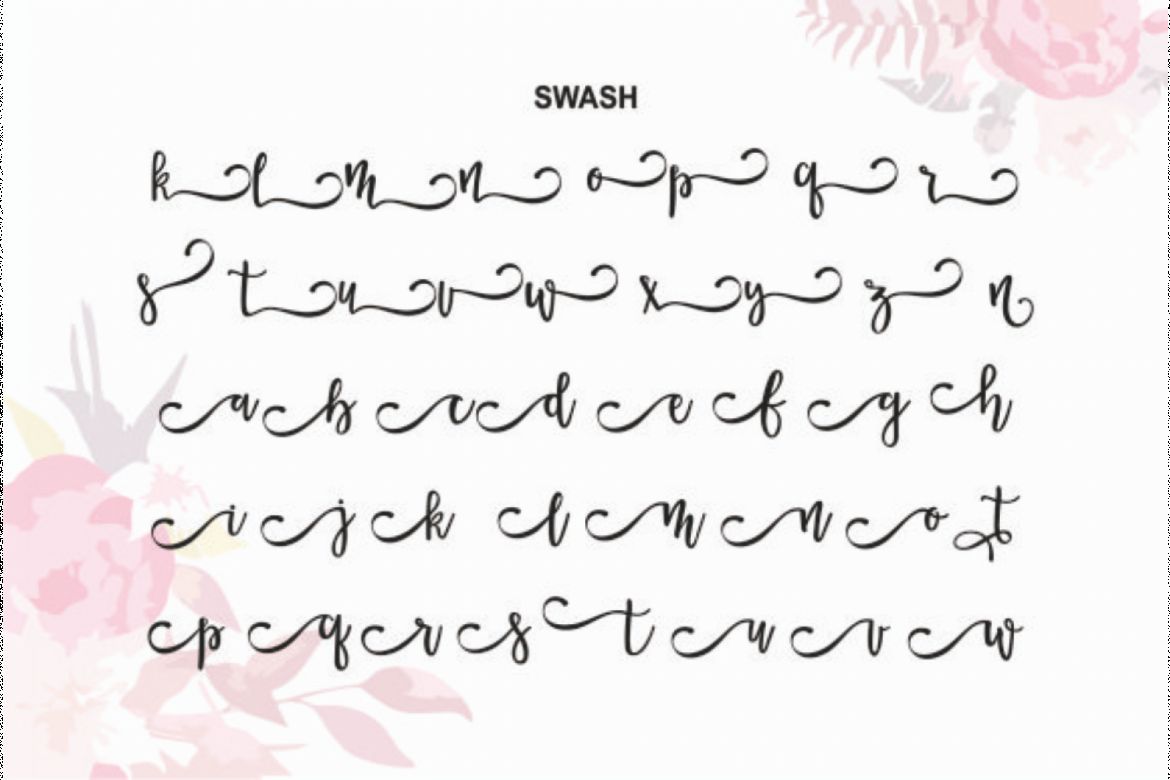 SWASH
k l m n o p q r
s t u v w x y z n
a b c d e f g h
i j k l m n o t
p q r s t u v w